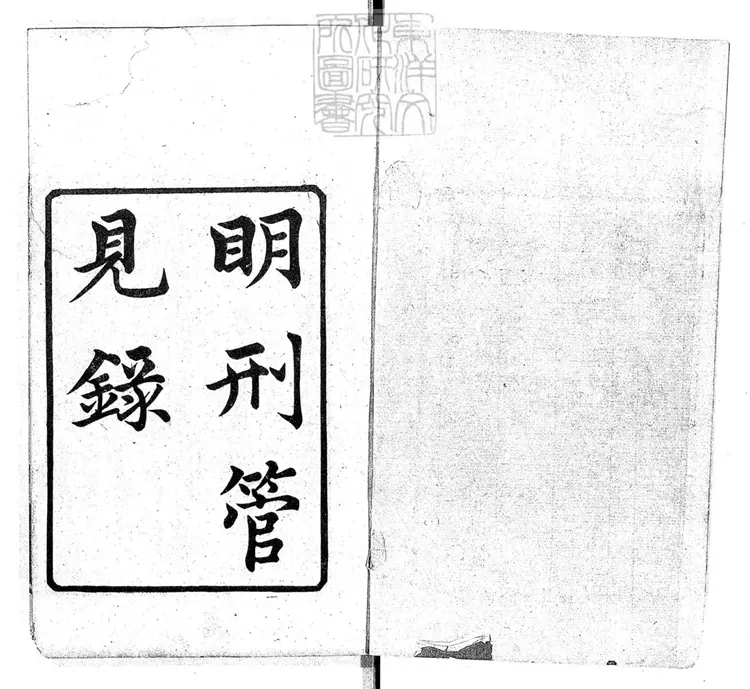 東洋文
化研究
所圖書
眀刑管
見錄